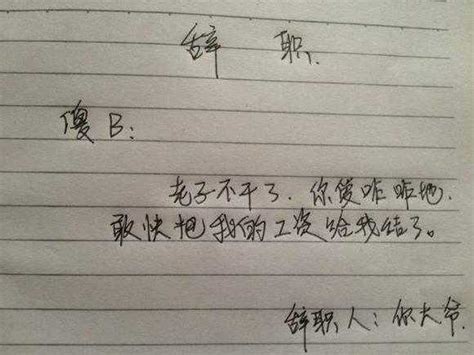 辞 职.
傻B:
老子不干了. 你爱咋咋地.
敢快把我的工资给我结了。
辞职人: 你大爷.